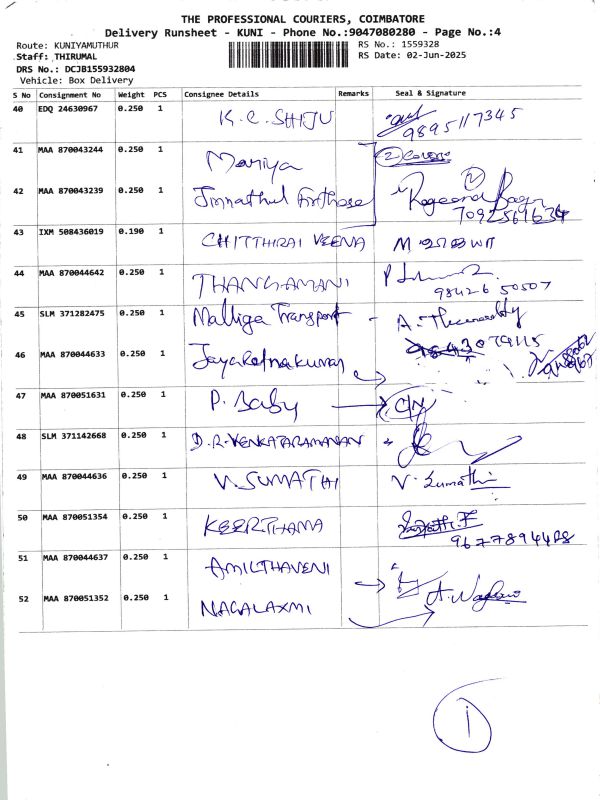 THE PROFESSIONAL COURIERS, COIMBATORE
Delivery Runsheet - KUNI - Phone No.:9047080280 - Page No.:4
Route: KUNIYAMUTHUR RS No.: 1559328
Staff: THIRUMAL RS Date: 02-Jun-2025
DRS No.: DCJB155932804
Vehicle: Box Delivery
S No Consignment No Weight PCS Consignee Details Remarks Seal & Signature
40 EDQ 24630967 0.250 1 K.C. SHIJU 9895117345
41 MAA 870043244 0.250 1 Mariya 2 Cover
42 MAA 870043239 0.250 1 Jinnathul Firthose 2 7092561634
43 IXM 508436019 0.190 1 CHITTHIRAI VEENA
44 MAA 870044642 0.250 1 THANGAMANI 98426 50507
45 SLM 371282475 0.250 1 Malliga Transport -
46 MAA 870044633 0.250 1 Jayaratnakumar
47 MAA 870051631 0.250 1 P. Baby C/N
48 SLM 371142668 0.250 1 D.R. VENKATARAMANAN
49 MAA 870044636 0.250 1 V. SUMATHI V. Sumathi
50 MAA 870051354 0.250 1 KEERTHANA
51 MAA 870044637 0.250 1 AMILTHAVENI
52 MAA 870051352 0.250 1 NAGALAXMI
1